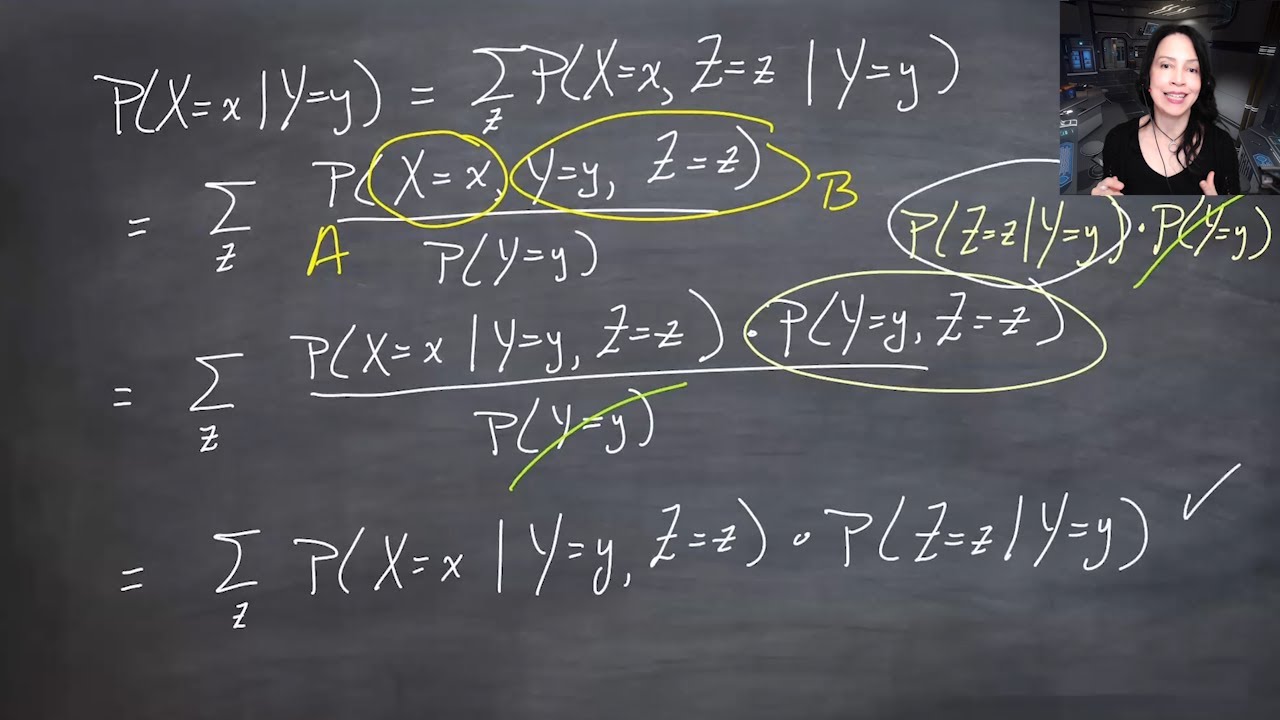 P(X=x | Y=y) = Σ_z P(X=x, Z=z | Y=y)
= Σ_z P(X=x, Y=y, Z=z) / P(Y=y)
A
B
P(Z=z | Y=y) · P(Y=y)
= Σ_z P(X=x | Y=y, Z=z) · P(Y=y, Z=z) / P(Y=y)
= Σ_z P(X=x | Y=y, Z=z) · P(Z=z | Y=y) ✓